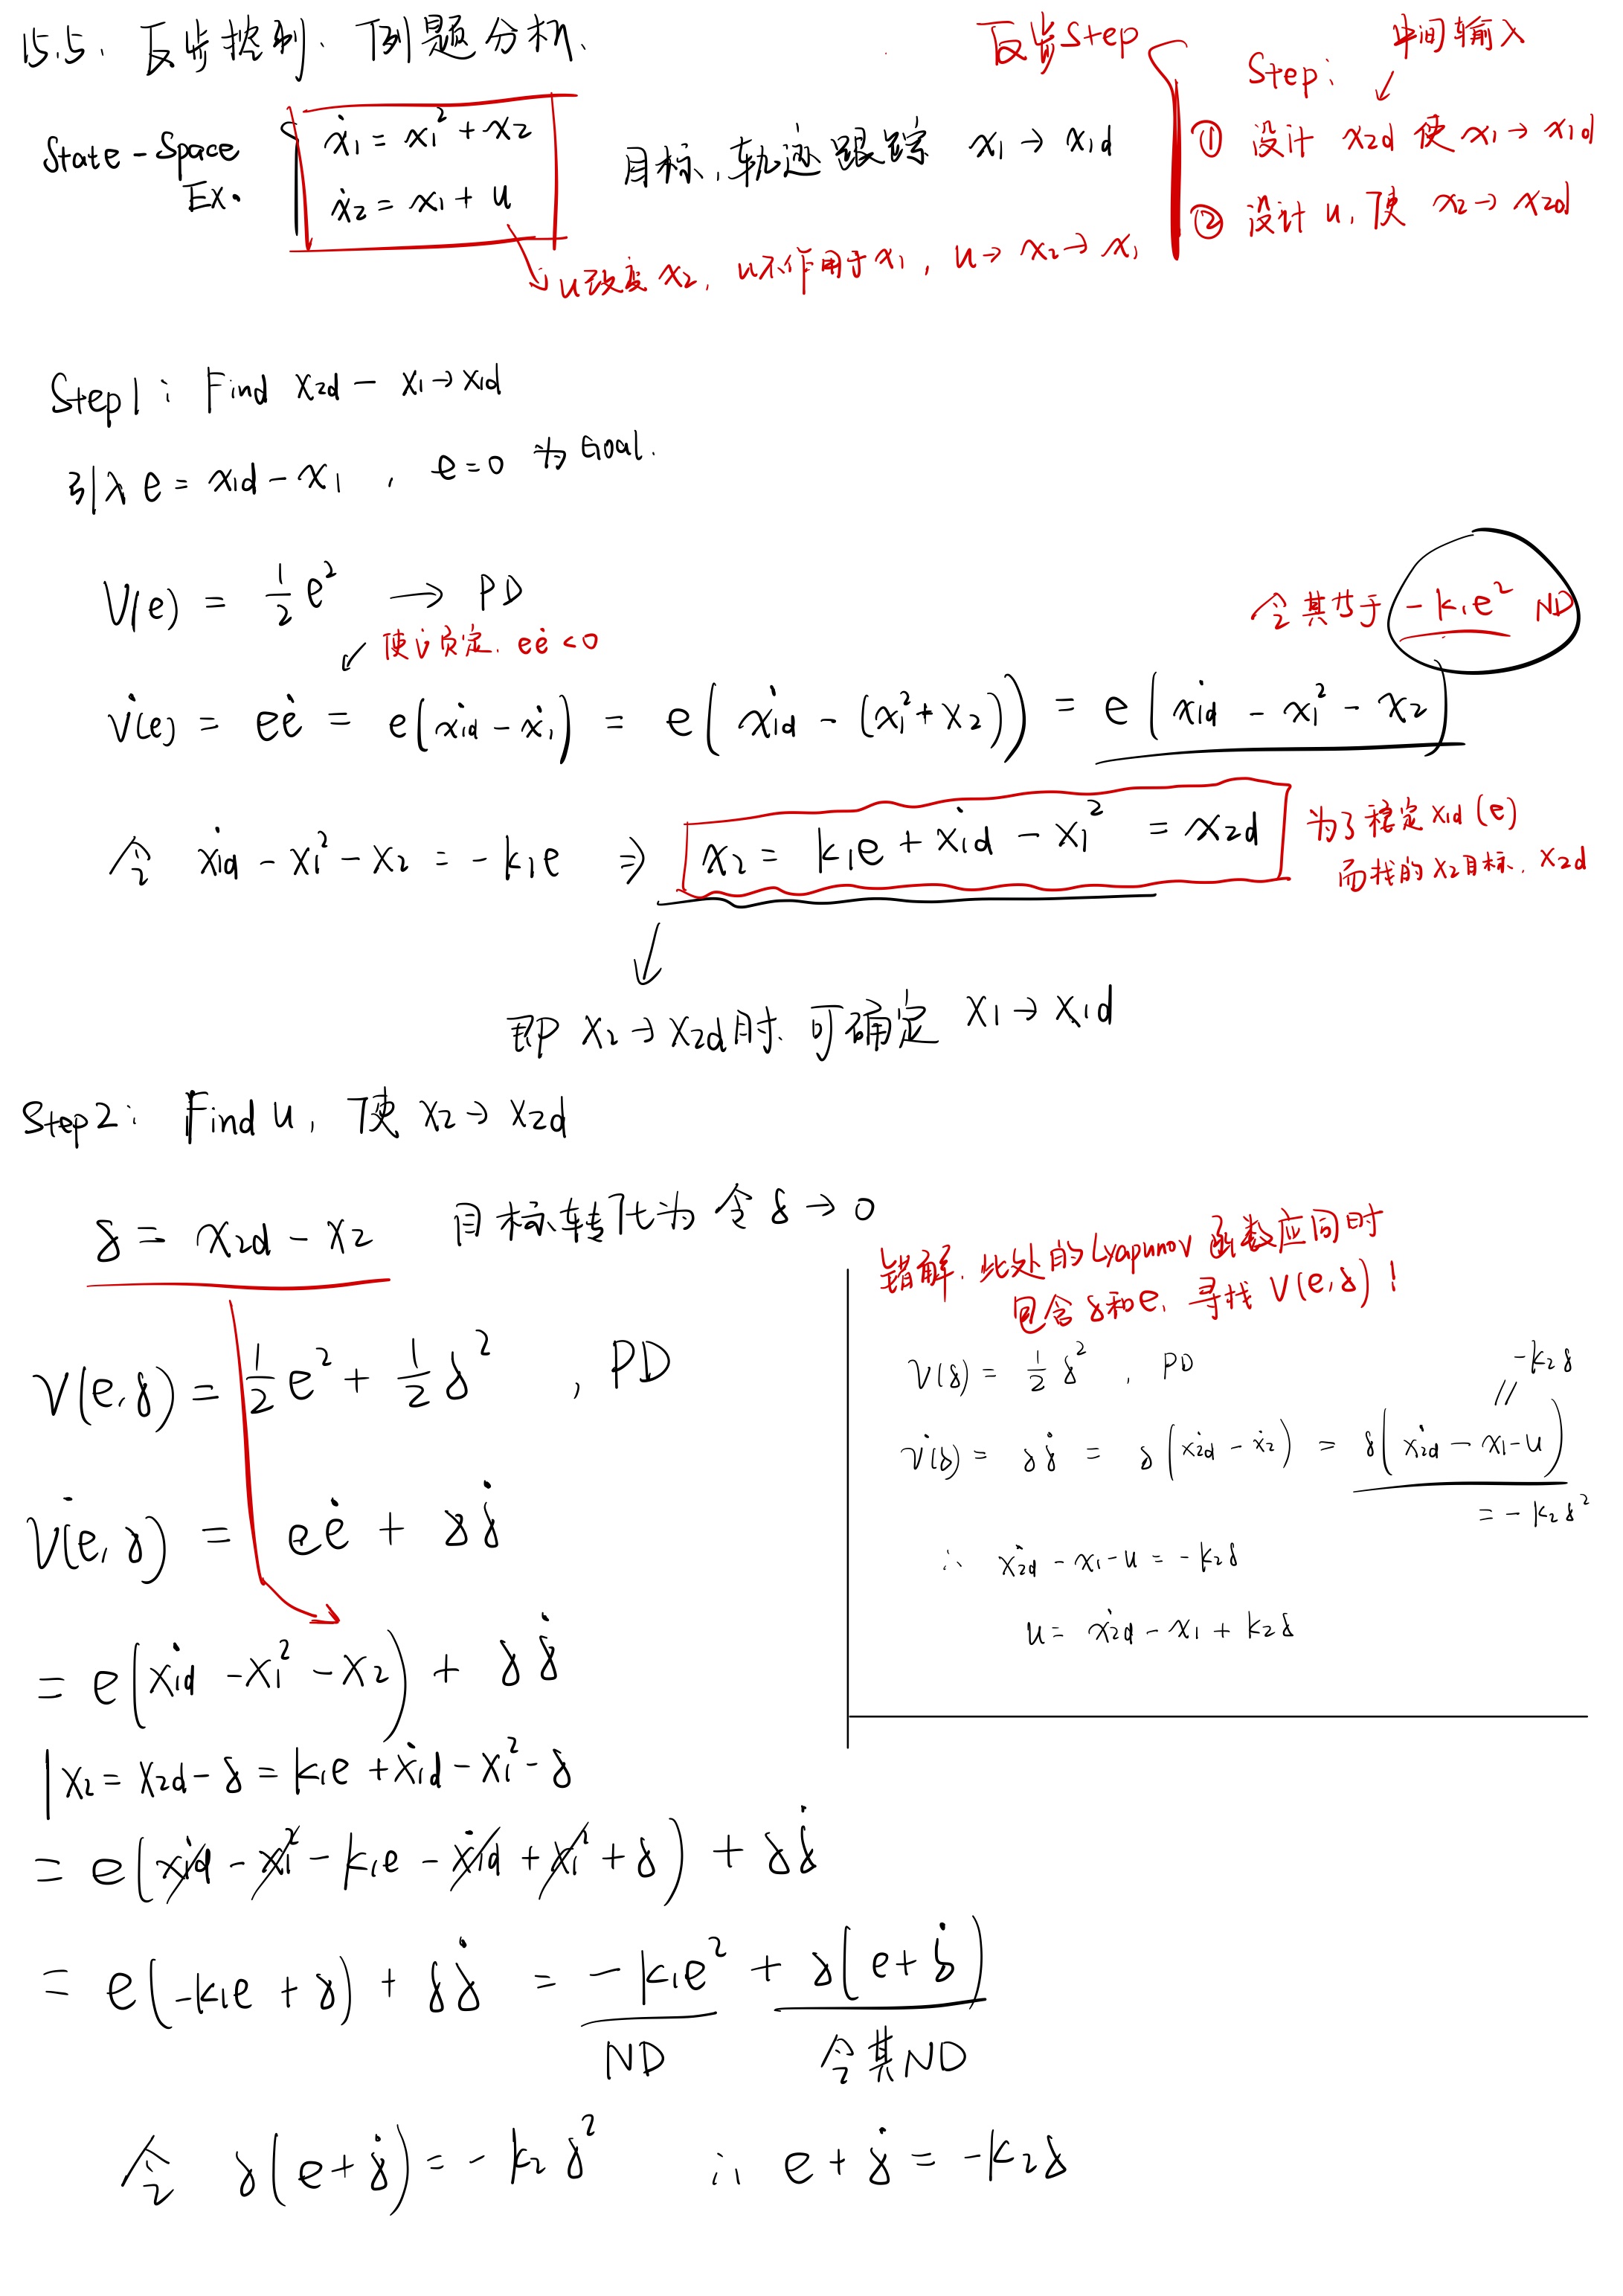 15.5. 反步控制. 例题分析.
反步Step
Step:
中间输入
① 设计 x2d 使 x1 → x1d
② 设计 u, 使 x2 → x2d
State-Space
Ex.
ẋ1 = x1² + x2
ẋ2 = x1 + u
目标, 轨迹跟踪 x1 → x1d
u改变 x2, u不作用于 x1, u → x2 → x1
Step1: Find x2d - x1 → x1d
引入 e = x1d - x1 , e=0 为 Goal.
V(e) = 1/2 e² → PD
使 v̇ 负定. eė < 0
令其等于 -k1e² ND
V̇(e) = eė = e(ẋ1d - ẋ1) = e(ẋ1d - (x1² + x2)) = e(ẋ1d - x1² - x2)
令 ẋ1d - x1² - x2 = -k1e ⇒ x2 = k1e + ẋ1d - x1² = x2d
为了稳定 x1d (e)
而找的 x2目标. x2d
即 x2 → x2d时. 可确定 x1 → x1d
Step2: Find u, 使 x2 → x2d
δ = x2d - x2 目标转化为 令 δ → 0
V(e,δ) = 1/2 e² + 1/2 δ² , PD
V̇(e,δ) = eė + δδ̇
= e(ẋ1d - x1² - x2) + δδ̇
| x2 = x2d - δ = k1e + ẋ1d - x1² - δ
= e(ẋ1d - x1² - k1e - ẋ1d + x1² + δ) + δδ̇
= e(-k1e + δ) + δδ̇ = -k1e² + δ(e + δ̇)
ND 令其ND
令 δ(e + δ̇) = -k2δ² ∴ e + δ̇ = -k2δ
错解. 此处的Lyapunov 函数应同时
包含 δ和e, 寻找 V(e,δ) !
V(δ) = 1/2 δ² , PD
-k2δ
//
V̇(δ) = δδ̇ = δ(ẋ2d - ẋ2) = δ(ẋ2d - x1 - u)
= -k2δ²
∴ ẋ2d - x1 - u = -k2δ
u = ẋ2d - x1 + k2δ